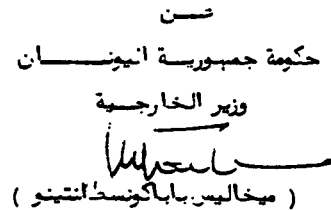 عن
حكومة جمهورية اليونان
وزير الخارجية
( ميخاليس باباكونستانتينو )